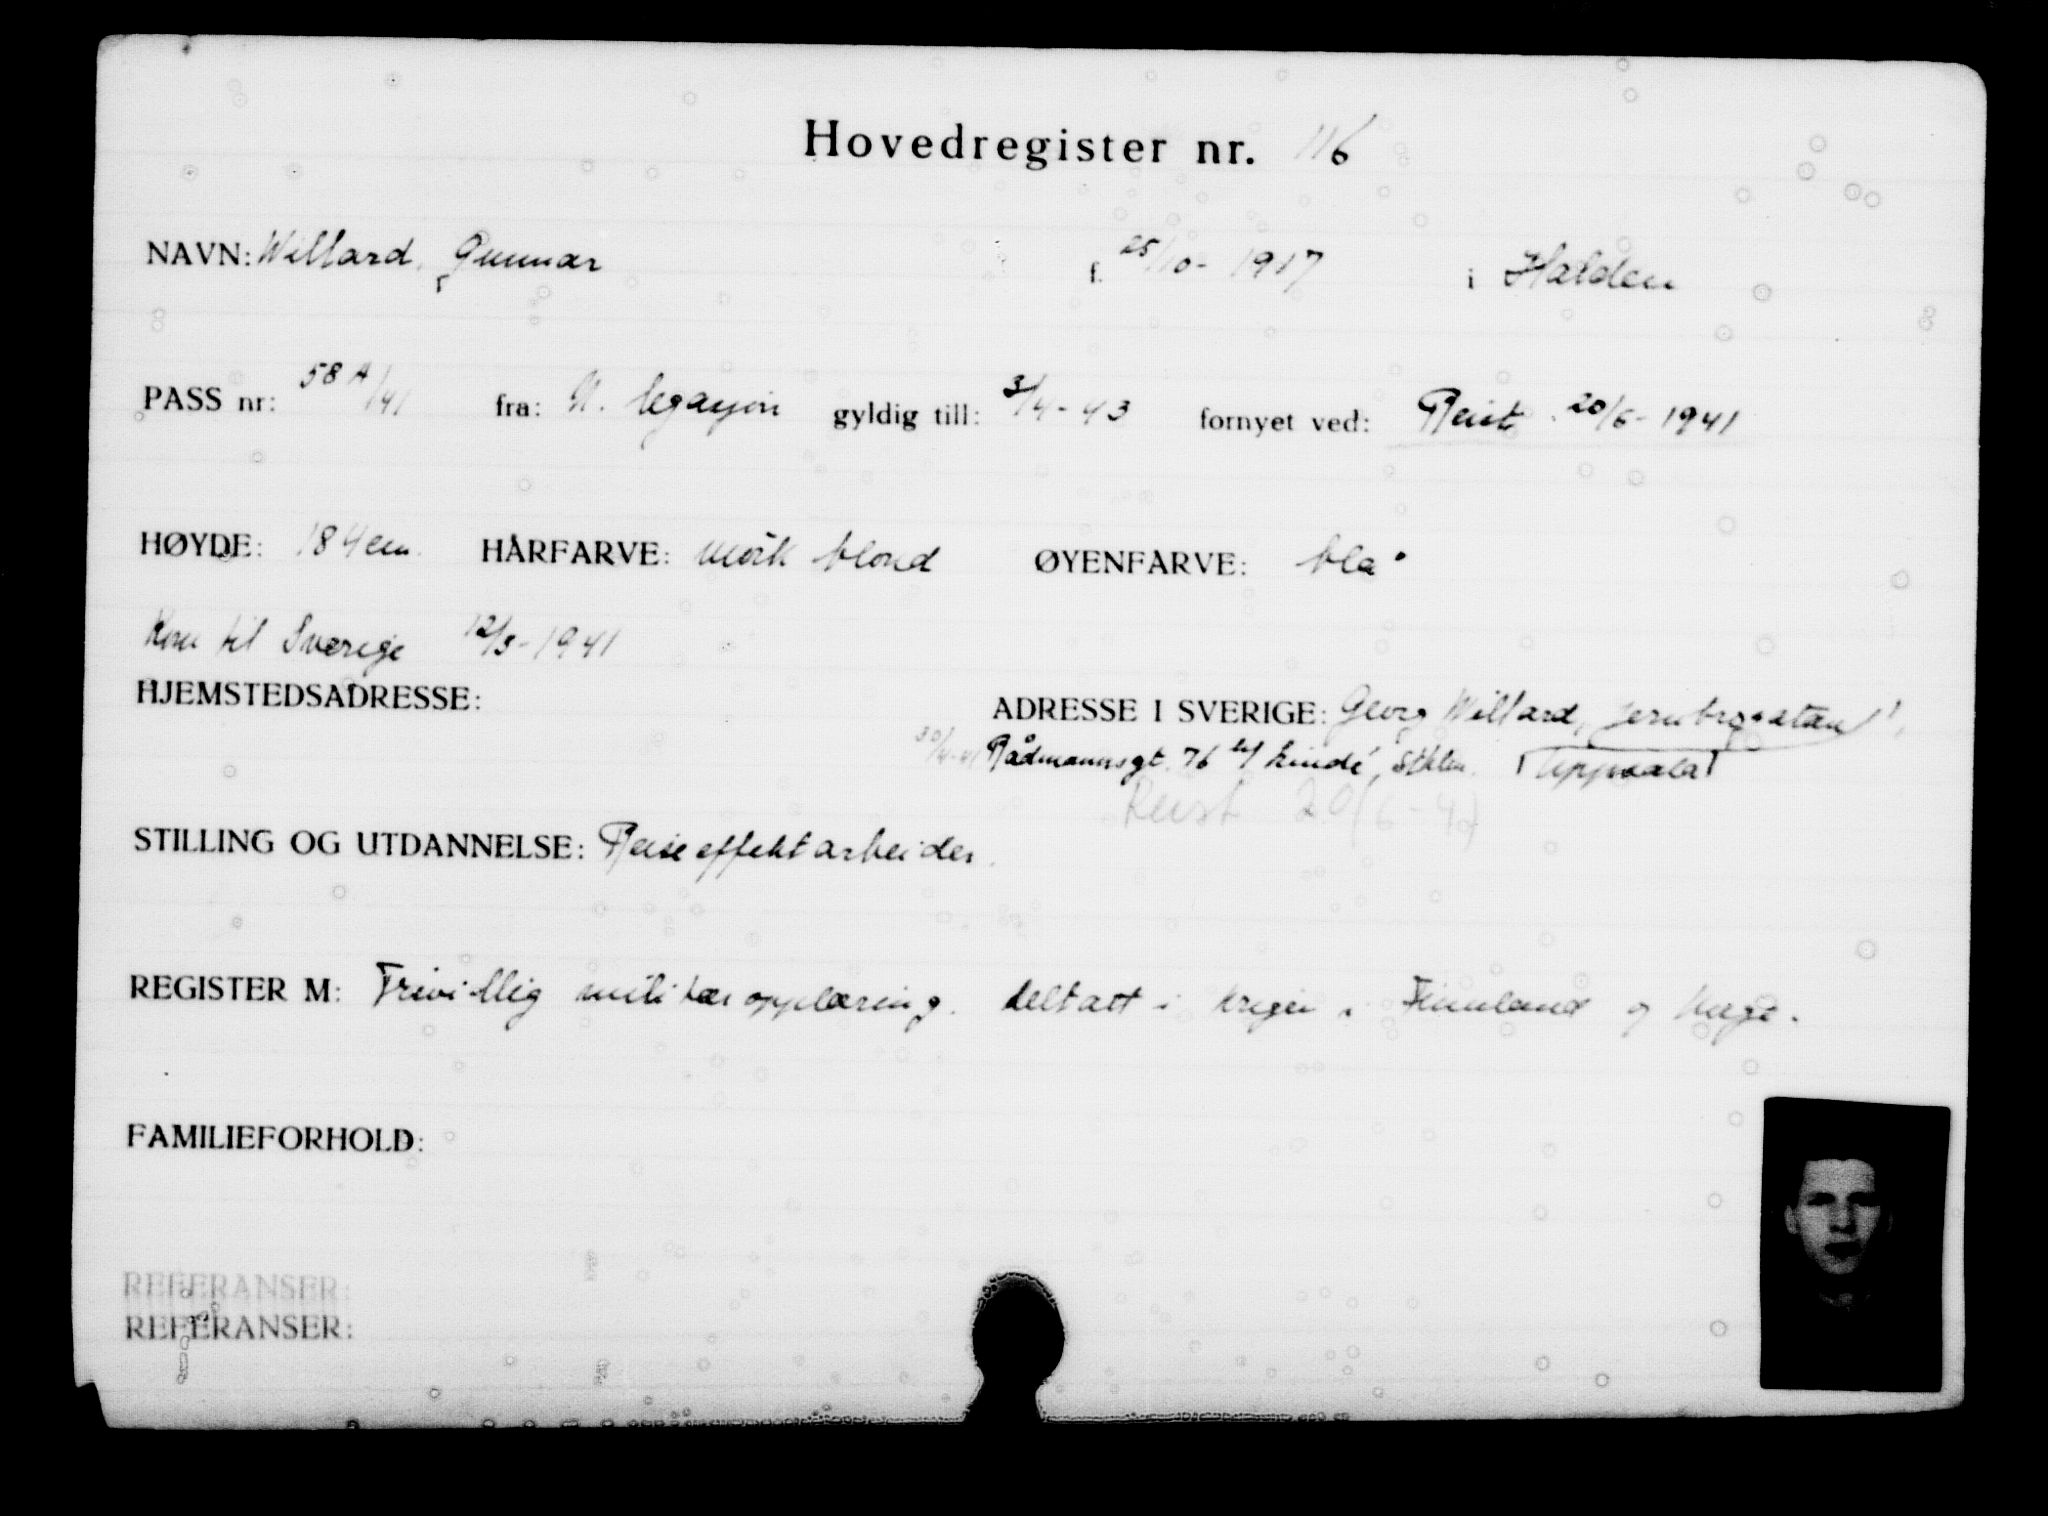 Hovedregister nr. 116
NAVN: Willard, Gunnar f. 25/10-1917 i Halden
PASS nr: 58 A/41 fra: N. legasjon gyldig till: 3/4-43 fornyet ved: Reist 20/6-1941
HØYDE: 184 cm. HÅRFARVE: mörk blond ØYENFARVE: blå
Kom til Sverige 12/3-1941
HJEMSTEDSADRESSE: ADRESSE I SVERIGE: Georg Willard,
30/4-41 Rådmannsgt. 76 Lindé, Sthlm. Uppsala
Reist 20/6-41
STILLING OG UTDANNELSE: Reiseeffektarbeider.
REGISTER M: Frivillig militæropplæring. Deltatt i krigen i Finnland og Norge.
FAMILIEFORHOLD:
REFERANSER:
REFERANSER: